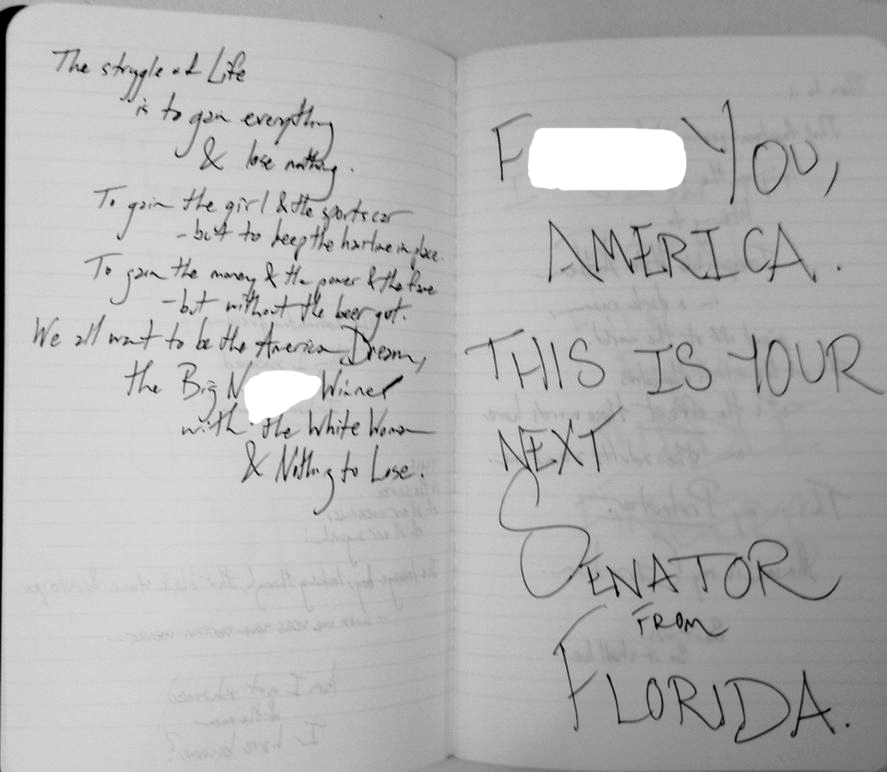 The struggle of Life
is to gain everything
& lose nothing.
To gain the girl & the sports car
- but to keep the hairline in place.
To gain the money & the power & the fame
- but without the beer gut.
We all want to be the America Dream,
the Big N Winner
with the White Woman
& Nothing to Lose.
F YOU,
AMERICA.
THIS IS YOUR
NEXT
SENATOR
FROM
FLORIDA.